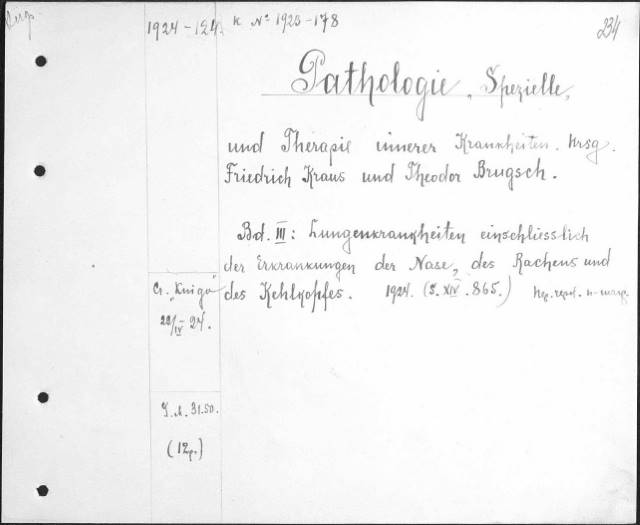 1924-124
k № 1923-178
234
Pathologie, Spezielle,
und Therapie innerer Krankheiten. Hrsg.
Friedrich Kraus und Theodor Brugsch.
Bd. III: Lungenkrankheiten einschliesslich
der Erkrankungen der Nase, des Rachens und
des Kehlkopfes. 1924. (S. XIV. 865.)
Ct. "Kniga"
22/IV 24.
31.50.
(12p.)